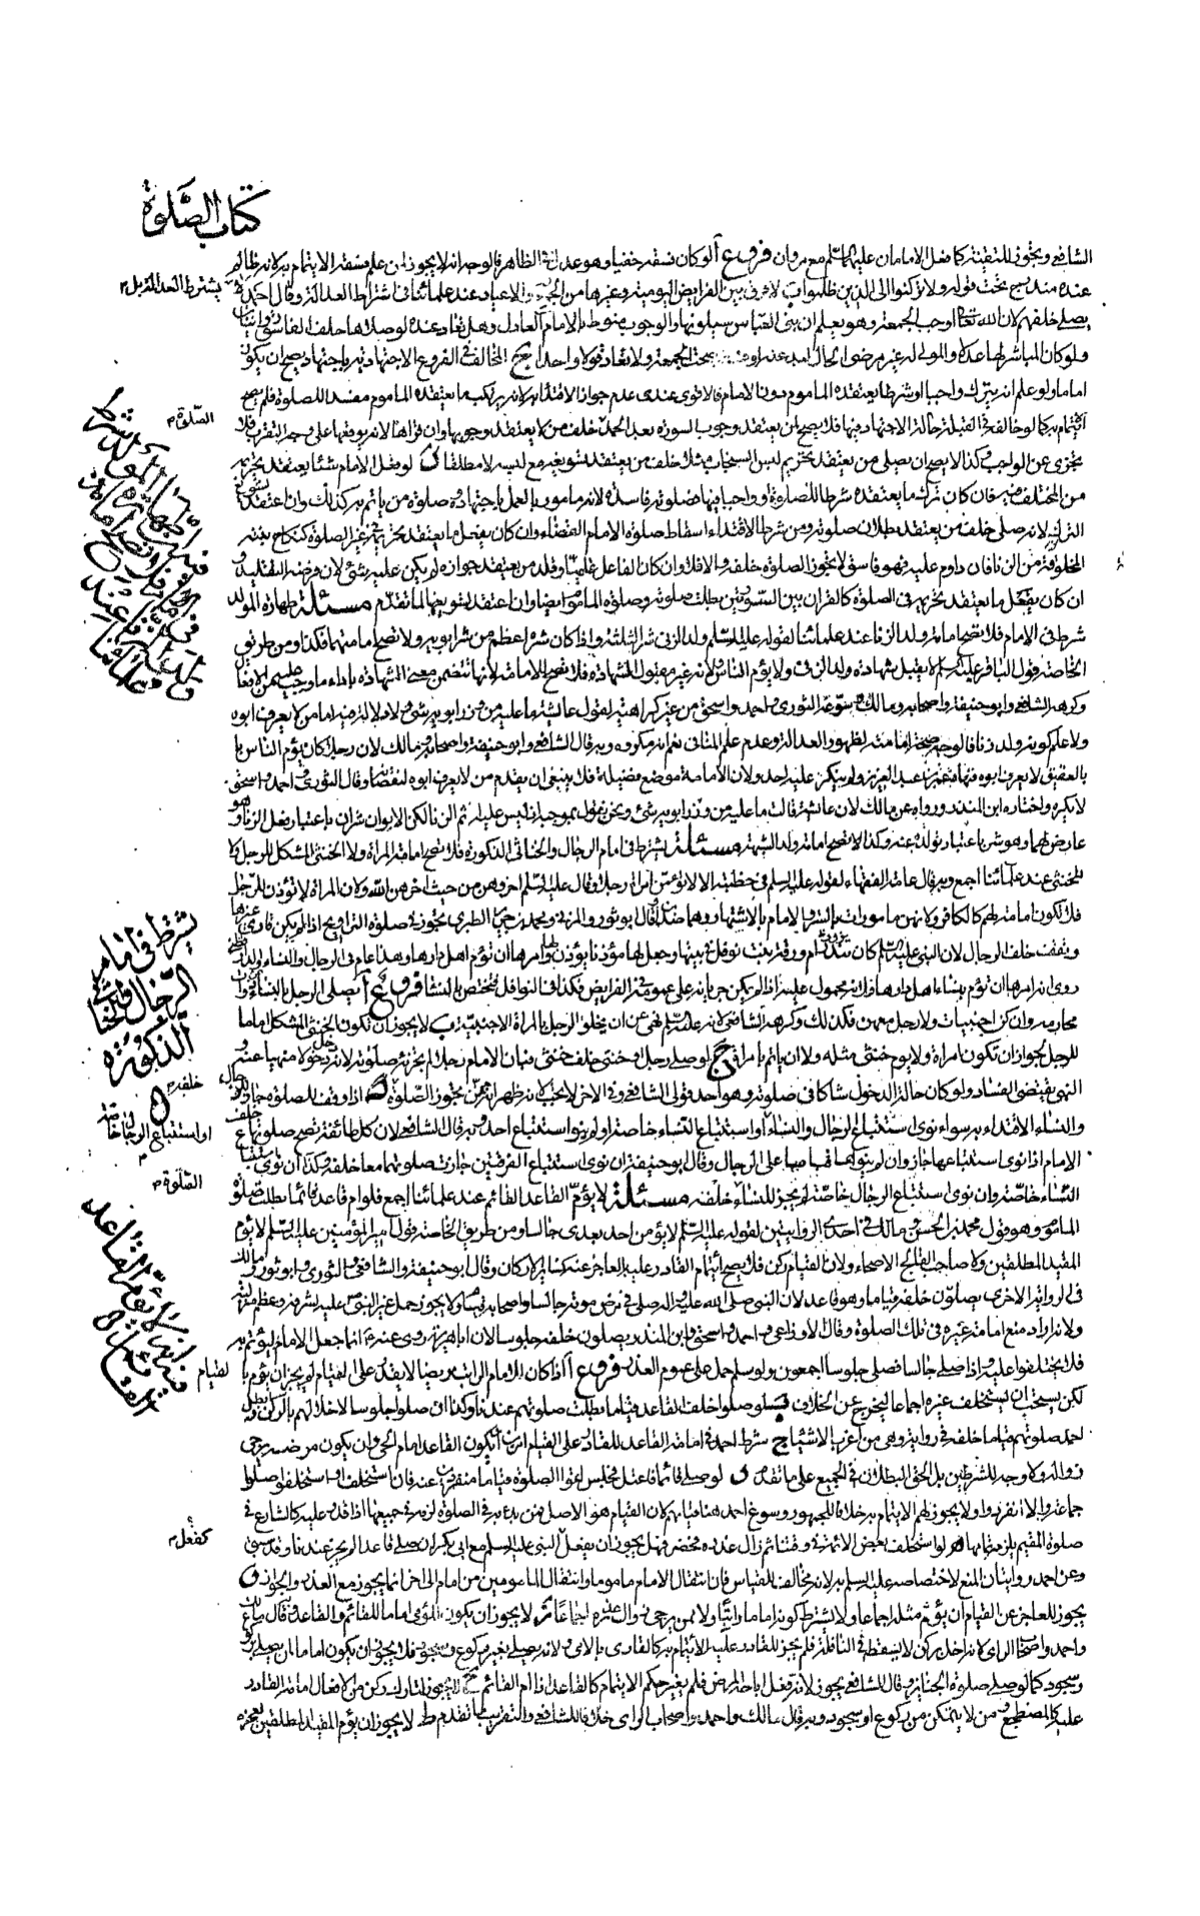 كتاب الصلوة
الشافعي ويجوز للتقية كما فعل الامامان عليهما السلم مع مروان فروع آ لو كان فسقه خفيا وهو عدل في الظاهر فالوجه انه لا يجوز لمن علم فسقه الايتمام به لانه ظالم
يشترط العدالة
عنده مندرج تحت قوله ولا تركنوا الى الذين ظلموا ب لا فرق بين الفرايض اليومية وغيرها من الجمعة والاعياد عند علمائنا في اشتراط العدالة وقال احمد
يصلي خلفهم لان الله تعالى اوجب الجمعة وهو يعلم ان بني العباس سيلونها والوجوب منوط بالامام العادل وهل تعاد عنده لو صلاها خلف الفاسق روايتان
ولو كان المباشر لها عدلا والمولى له غير مرضي الحال صحت الجمعة ولا تعاد قولا واحدا ج المخالف في الفروع الاجتهادية باجتهاد يصح ان يكون
اماما ولو علم انه يترك واجبا او شرطا يعتقده الماموم دون الامام فالاقوى عندي عدم جواز الاقتداء به لانه يرتكب ما يعتقده الماموم مفسدا للصلوة فلم يصح
الصلوة
ايتمامه به كما لو خالفه في القبلة حالة الاجتهاد فيها فلا يصح لمن يعتقد وجوب السورة بعد الحمد خلف من لا يعتقد وجوبها وان قراها لانه يوقعها على وجه الندب فلا
يجزي عن الواجب وكذا لا يصح ان يصلي من يعتقد تحريم لبس السنجاب مثلا خلف من يعتقد تسويغه مع لبسه لا مطلقا د لو فعل الامام شئا يعتقد تحريمه
من المختلف فيه فان كان ترك ما يعتقده شرطا للصلوة او واجبا فيها فصلوته فاسدة لانه مامور بالعمل باجتهاده وصلوة من ياتم به كذلك وان اعتقد تسويغ
الترك لانه صلى خلف من يعتقد بطلان صلوته ومن شرط الاقتداء اسقاط صلوة الامام القضاء وان كان يفعل ما يعتقد تحريمه في غير الصلوة كنكاح بنته
المخلوقة من الزنا فان داوم عليه فهو فاسق لا يجوز الصلوة خلفه والا فلا وان كان الفاعل عاميا وقلد من يعتقد جوازه لم يكن عليه شئ لان فرضه التقليد و
ان كان يفعل ما يعتقد تحريمه في الصلوة كالقران بين السورتين بطلت صلوته وصلوة الماموم ايضا وان اعتقد تسويغها لما تقدم مسئلة طهارة المولد
شرط في الامام فلا تصح امامة ولد الزنا عند علمائنا لقوله عليه السلم ولد الزنى شر الثلثة واذا كان شره اعظم من شر ابويه ولا تصح امامتهما فكذا هو ومن طريق
الخاصة قول الباقر عليه السلم لا يقبل شهادة ولد الزنى ولا يؤم الناس ولانه غير مقبول الشهادة فلا تصح الامامة لانها تتضمن معنى الشهادة باداء ما وجب عليهم من الافعال
وكرهه الشافعي وابو حنيفة واصحابه ومالك وسوغه الثوري واحمد واسحق من غير كراهية لقول عايشة ما عليه من وزر ابويه شئ ولا دلالة فيه اما من لا يعرف ابوه
ولا علم كونه ولد زنا فالوجه صحة امامته لظهور العدالة وعدم علم المنافي نعم انه مكروه وبه قال الشافعي وابو حنيفة واصحابه ومالك لان رجلا كان يؤم الناس
بالعقيق لا يعرف ابوه فنهاه عمر بن عبد العزيز ولم ينكر عليه احد ولان الامامة موضع فضيلة فلا ينبغي ان يقدم من لا يعرف ابوه لنقصه وقال الثوري واحمد واسحق
لا يكره واختاره ابن المنذر ورواه عن مالك لان عائشة قالت ما عليه من وزر ابويه شئ ونحن نقول بموجبه اذ ليس عليه اثم الزنا لكن الابوان شران باعتبار فعل الزنا وهو
عارض لهما وهو شر باعتبار تولده عنه وكذا لا تصح امامة ولد الشبهة مسئلة يشترط في امام الرجال والخناثى الذكورة فلا تصح امامة المراة ولا الخنثى المشكل للرجل ولا
للخنثى عند علمائنا اجمع وبه قال عامة الفقهاء لقوله عليه السلم في خطبته الا لا تؤمن امراة رجلا وقال عليه السلم اخروهن من حيث اخرهن الله ولان المراة لا تؤذن للرجال
فلا تكون امامة لهم كالكافر ولانهن مامورات بالستر والامام بالاشتهار وهما ضدان وقال ابو ثور والمزني ومحمد بن جرير الطبري يجوز في صلوة التراويح اذا لم يكن قارئ غيرها
ويقف خلف الرجال لان النبي عليه السلم كان يزور ام ورقة بنت نوفل في بيتها وجعل لها مؤذنا يؤذن لها وامرها ان تؤم اهل دارها وهذا عام في الرجال والنساء
روي انه امرها ان تؤم بنساء اهل دارها فانه محمول عليه اذا لم يكن جريانه على عمومه في الفرايض فكذا في النوافل فيختص بالنساء فروع آ يصلي الرجل بالنساء
محارمه وان كن اجنبيات ولا رجل معهن فكذلك وكرهه الشافعي لانه عليه السلم نهى عن ان يخلو الرجل بالمراة الاجنبية ب لا يجوز ان تكون الخنثى المشكل اماما
للرجل لجواز ان تكون امراة ولا يؤم خنثى مثله ولا ان ياتم بامراة ج لو صلى رجل او خنثى خلف خنثى فبان الامام رجلا لم يجزئه صلوته لانه دخولا منهيا عنه و
النهي يقتضي الفساد ولو كان حالة الدخول شاكا في صلوته وهو احد قولي الشافعي وفي الاخر لا يجب لانه ظهر انه ممن يجوز الصلوة خلفه د اذا وقف للصلوة جاز للرجال
والنساء الاقتداء به سواء نوى استتباع الرجال والنساء او استتباع النساء خاصة او لم ينو استتباع احد وبه قال الشافعي لان كل طائفة تصح صلوتها خلف
او استتباع الرجال خاصة
الامام اذا نوى استتباعها جاز وان لم ينو لها قياسا على الرجال وقال ابو حنيفة ان نوى استتباع الفرقتين جازت صلوتهما معا خلفه وكذا ان نوى استتباع
الصلوة
النساء خاصة وان نوى استتباع الرجال خاصة لم يجز للنساء خلفه مسئلة لا يؤم القاعد القائم عند علمائنا اجمع فلو ام قاعد قائما بطلت صلوة
الماموم وهو قول محمد بن الحسن ومالك في احدى الروايتين لقوله عليه السلم لا يؤمن احد بعدي جالسا ومن طريق الخاصة قول امير المؤمنين عليه السلم لا يؤم
المقيد المطلقين ولا صاحب الفالج الاصحاء ولان القيام ركن فلا يصح ايتمام القادر عليه بالعاجز عنه كساير الاركان وقال ابو حنيفة والشافعي والثوري وابو ثور ومالك
في الرواية الاخرى يصلون خلفه قياما وهو قاعد لان النبي صلى الله عليه واله صلى في مرض موته جالسا واصحابه قياما ولا يجوز حمل غير النبي عليه لشرفه وعظم منزلته
ولانه اراد منع امامة غيره في تلك الصلوة وقال الاوزاعي واحمد واسحق وابن المنذر يصلون خلفه جلوسا لان ابا هريرة روى عنه انما جعل الامام ليؤتم به
فلا يختلفوا عليه واذا صلى جالسا فصلوا جلوسا اجمعون ولو سلم حمل على عموم العذر فروع آ اذا كان الامام الراتب مريضا لا يقدر على القيام لم يجز ان يؤم بالقيام
لكن يستحب ان يستخلف غيره اجماعا ليخرج عن الخلاف ب لو صلوا خلف القاعد قياما بطلت صلوتهم عندنا وكذا ان صلوا جلوسا لاخلالهم بالركن وقال
احمد صلوتهم قياما خلفه في رواية وهي من اغرب الاشياء ج شرط احمد في امامة القاعد للقادر على القيام امرين ان يكون القاعد امام الحي وان يكون مرضه يرجى
زواله ولا وجه للشرطين بل الحق البطلان في الجميع على ما تقدم د لو صلى قائما فاعتل فجلس اتموا الصلوة قياما منفردين عنه فان استخلف او استخلفوا صلوا
جماعة والا انفردوا ولا يجوز لهم الايتمام به خلافا للجمهور وسوغ احمد هنا قيامهم لان القيام هو الاصل فمن بدء به في الصلوة لزمه في جميعها اذا قدر عليه كالشارع في
صلوة المقيم يلزمه اتمامها ه لو استخلف بعض الائمة وقتا ثم زال عذره فحضر فهل يجوز ان يفعل كفعل النبي عليه السلم مع ابي بكر ان صلى قاعدا لم يجز عندنا وقد سبق
وعن احمد روايتان المنع لاختصاصه عليه السلم به لانه مخالف للقياس فان انتقال الامام ماموما وانتقال المامومين من امام الى اخر انما يجوز مع العذر والجواز و
يجوز للعاجز عن القيام ان يؤم مثله اجماعا ولا يشترط كونه اماما راتبا ولا ممن يرجى زوال عذره اجماعا ز لا يجوز ان يكون المومي اماما للقائم والقاعد وقال مالك
واحمد واصحاب الراي لانه اخل بركن لا يسقط في النافلة فلم يجز للقادر عليه الايتمام به كالقارئ بالامي ولانه يصلي بغير ركوع وسجود فلا يجوز ان يكون اماما لمن يصلي بركوع
وسجود كما لو صلى صلوة الجنازة وقال الشافعي يجوز لانه فعل اباحه المرض فلم يغير حكم الايتمام كالقاعد اذا ام القائم ح لا يجوز لتارك ركن من الافعال امامة القادر
عليه كالمضطجع ومن لا يتمكن من ركوع او سجود وبه قال مالك واحمد واصحاب الراي خلافا للشافعي والتقريب ما تقدم ط لا يجوز ان يؤم المقيد المطلقين لعجزه
يشترط في امام الرجال والخناثى الذكورة
في انه لا يؤم القاعد القائم